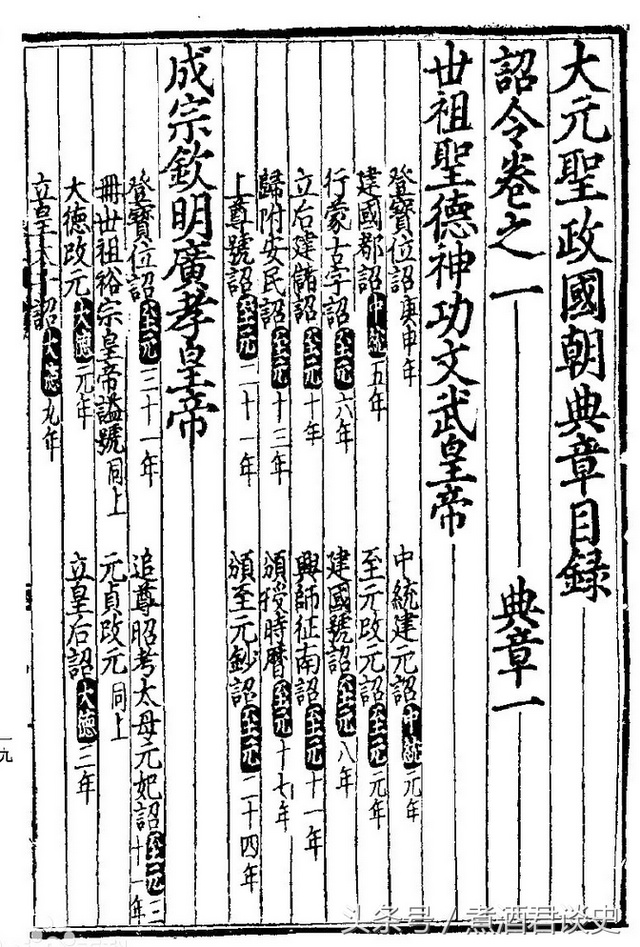 大元聖政國朝典章目録
詔令卷之一 典章一
世祖聖德神功文武皇帝
登寶位詔庚申年 中統建元詔中統元年
建國都詔中統五年 至元改元詔至元元年
行蒙古字詔至元六年 建國號詔至元八年
立后建儲詔至元十年 興師征南詔至元十一年
歸附安民詔至元十三年 頒授時曆至元十七年
上尊號詔至元二十一年 頒至元鈔詔至元二十四年
成宗欽明廣孝皇帝
登寶位詔至元三十一年 追尊昭考太母元妃詔至元三十一年
冊世祖裕宗皇帝謚號同上 元貞改元同上
大德改元大德元年 立皇后詔大德三年
立皇太子詔大德九年
一九
头条号/煮酒君谈史